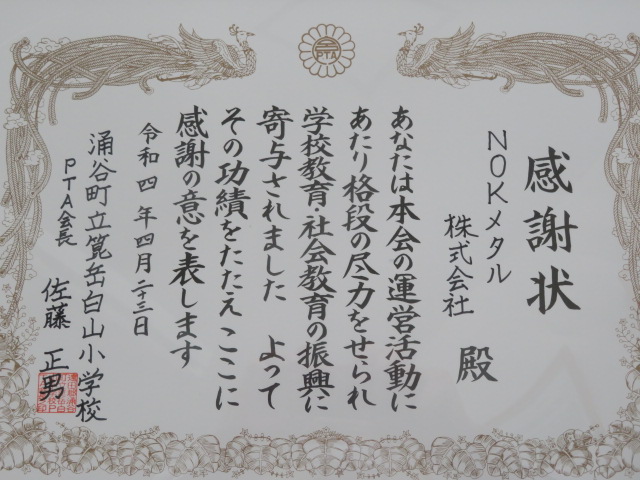 PTA
感謝状
NOKメタル
株式会社 殿
あなたは本会の運営活動に
あたり格段の尽力をせられ
学校教育・社会教育の振興に
寄与されました よって
その功績をたたえここに
感謝の意を表します
令和四年四月二十三日
涌谷町立箟岳白山小学校
PTA会長 佐藤 正男